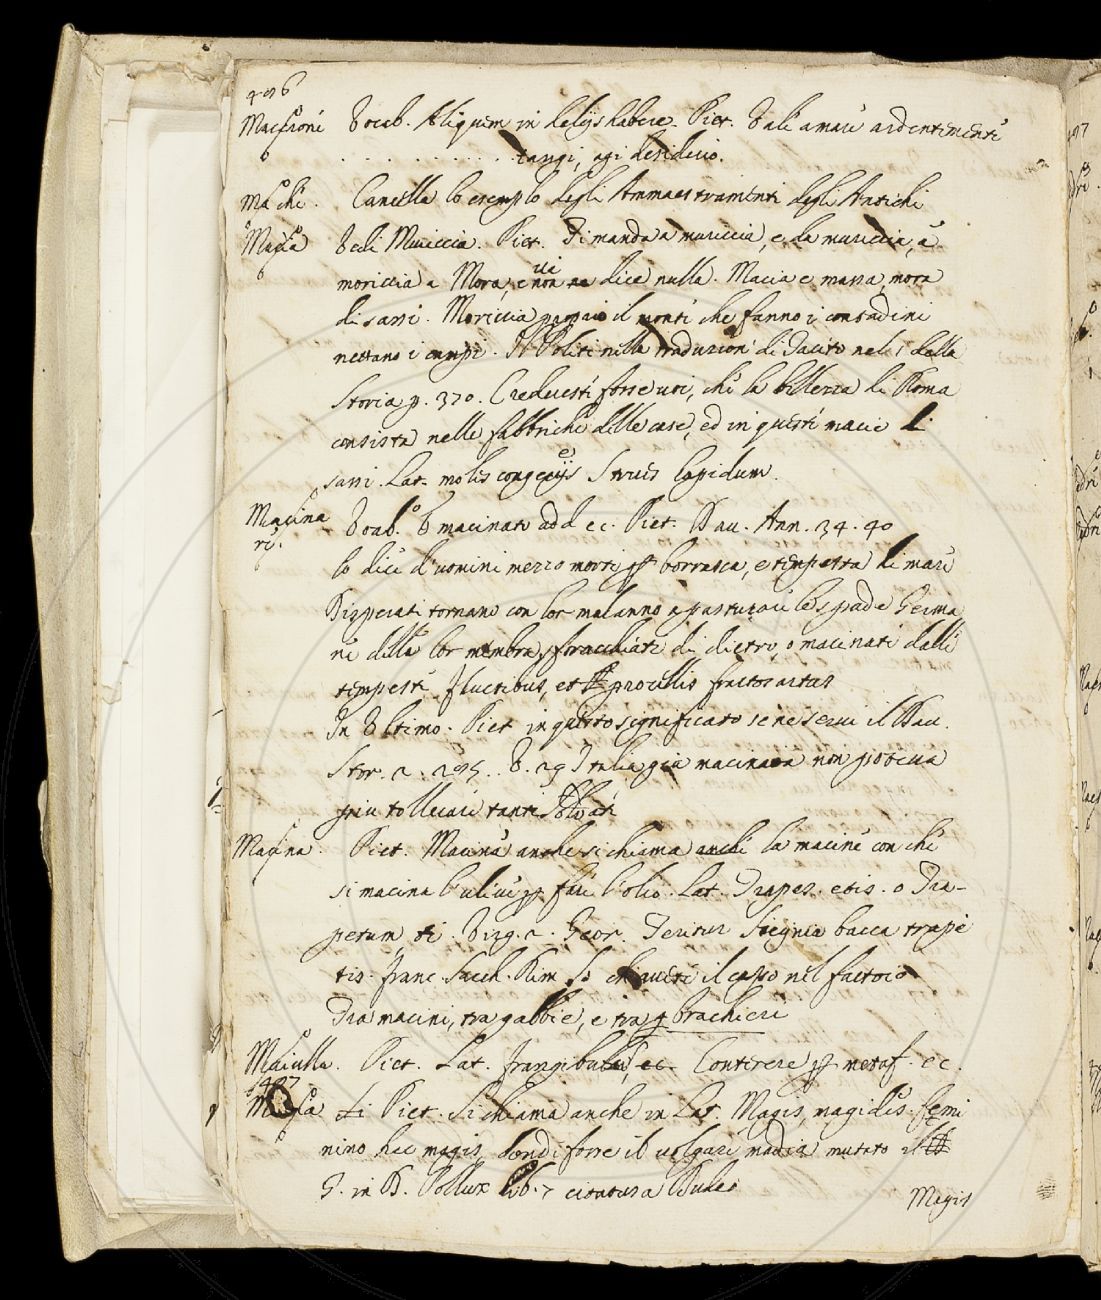 496
Vocab. Aliquem in delijs habere. Pict. Vale amare ardentemente
tangi, agi desiderio.
Ma chè. Cancella lo esemplo degli Ammaestramenti degli Antichi
Macia Vedi Muriccia. Pict. Di manda a muriccia, e da muriccia, a
moriccia a Mora, e non ne vi dice nulla. Macia e massa, mora
di sassi. Moriccia il monte che fanno i contadini
nettano i campi. Il Politi nella traduzione di Tacito nel 1 della
Storia p. 370. Credereste forse voi, che la bellezza di Roma
consista nelle fabbriche delle case, ed in queste macie di
sassi. Lat. moles Strues lapidum.
Macina
re. Vocab. macinato add ec. Pict. Dav. Ann. 34. 40
lo dice d'uomini mezzo morti p borrasca, e tempesta di mare
tornano con lor malanno a le spade Germa
ne delle lor membra, foracchiate di dietro, o macinati dalle
tempeste, fluctibus, et procellis fractos artus
In Vltimo. Pict in questo significato se ne servi il Dav.
Stor. 2. 295. V. 29 Italia già macinata non poteva
piu tollerare tanti
Macina. Pict. Macina anche si chiama anche la macine con che
si macina l'ulive p fare l'olio. Lat. Trapes. etis. o Tra-
petum ti. Virg. 2. Geor. Teritur Sicynia bacca trape
tis. Franc. Sacch. Rim. il capo nel fattoio
Tra macini, tra gabbie, e tra brachieri
Maciulla. Pict. Lat. frangibula, ec. Conterere p metaf. ec.
1497
Li Pict. Si chiama anche in Lat. Magis, magidis. femi
nino hec magis, donde forse il volgare madia mutato il
G. in D. Pollux lib. 7
Magis